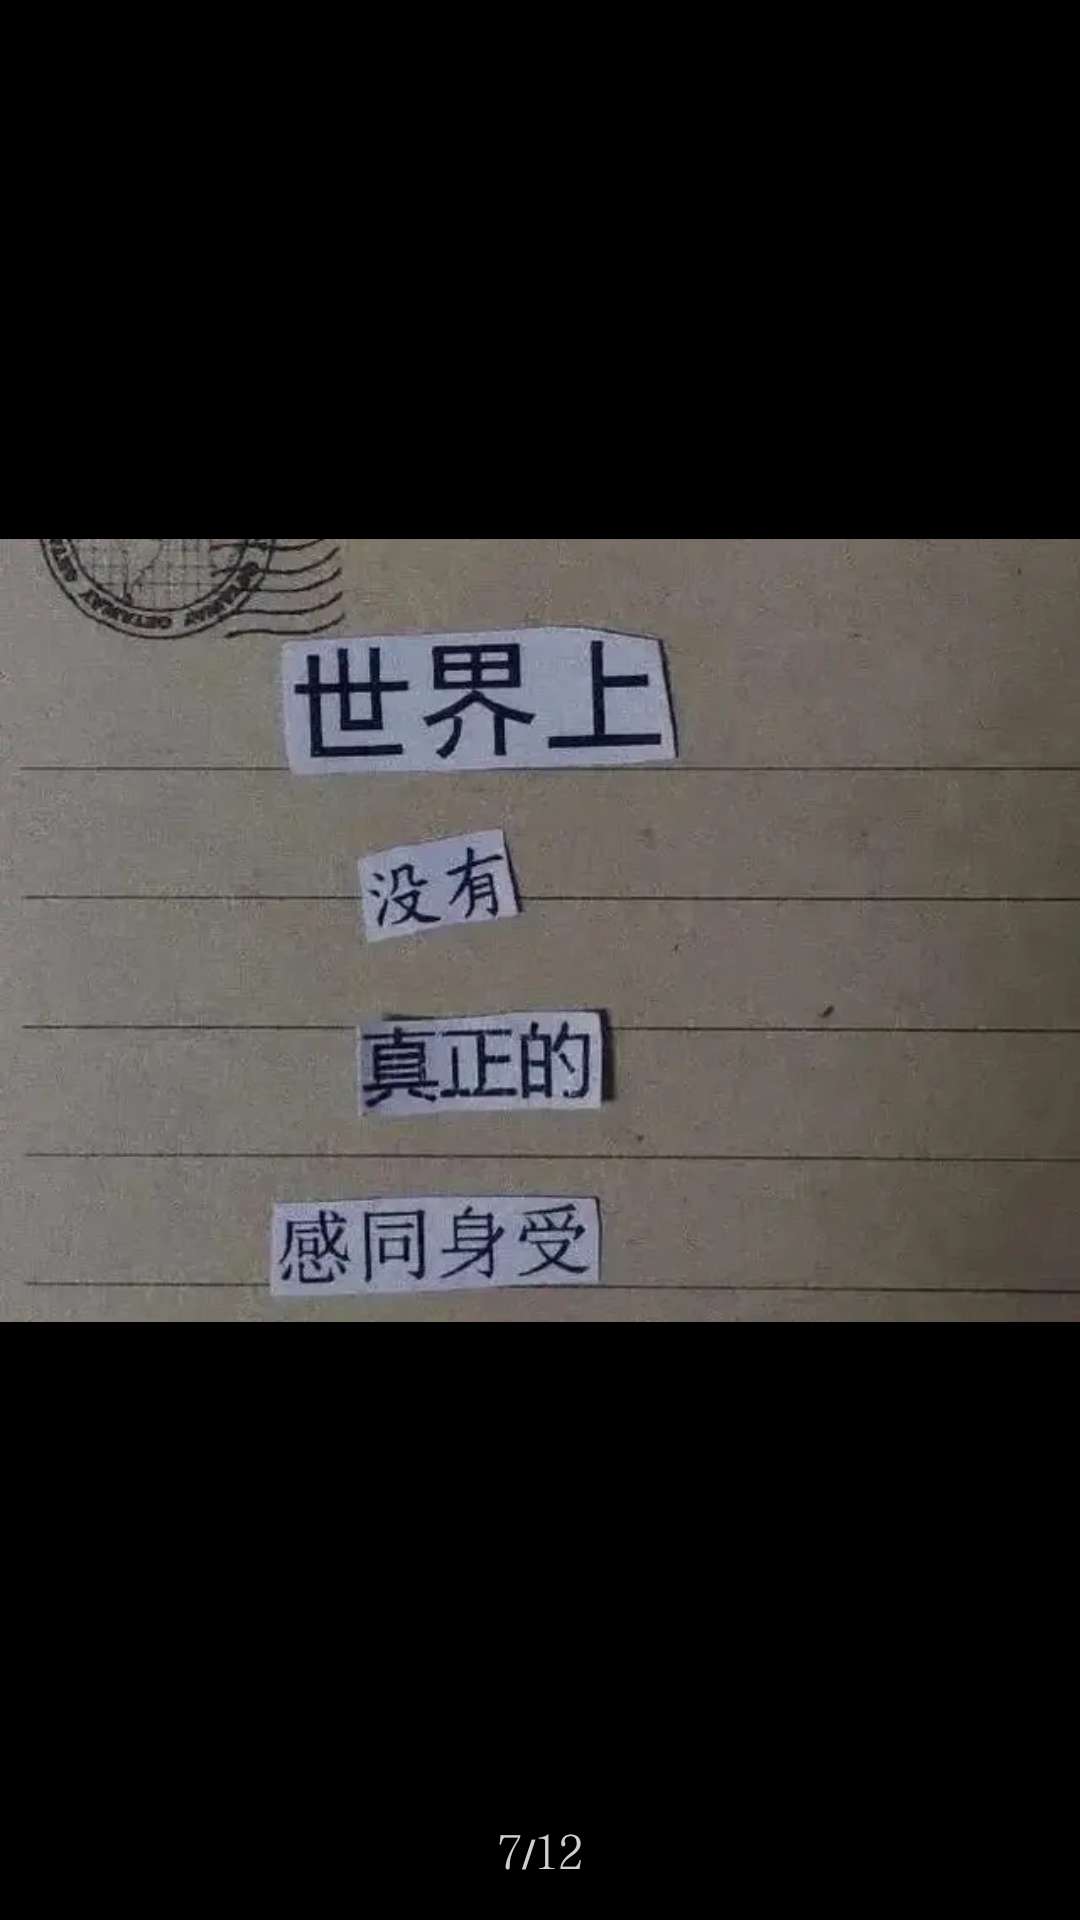 GETAWAY
世界上
没有
真正的
感同身受
7/12